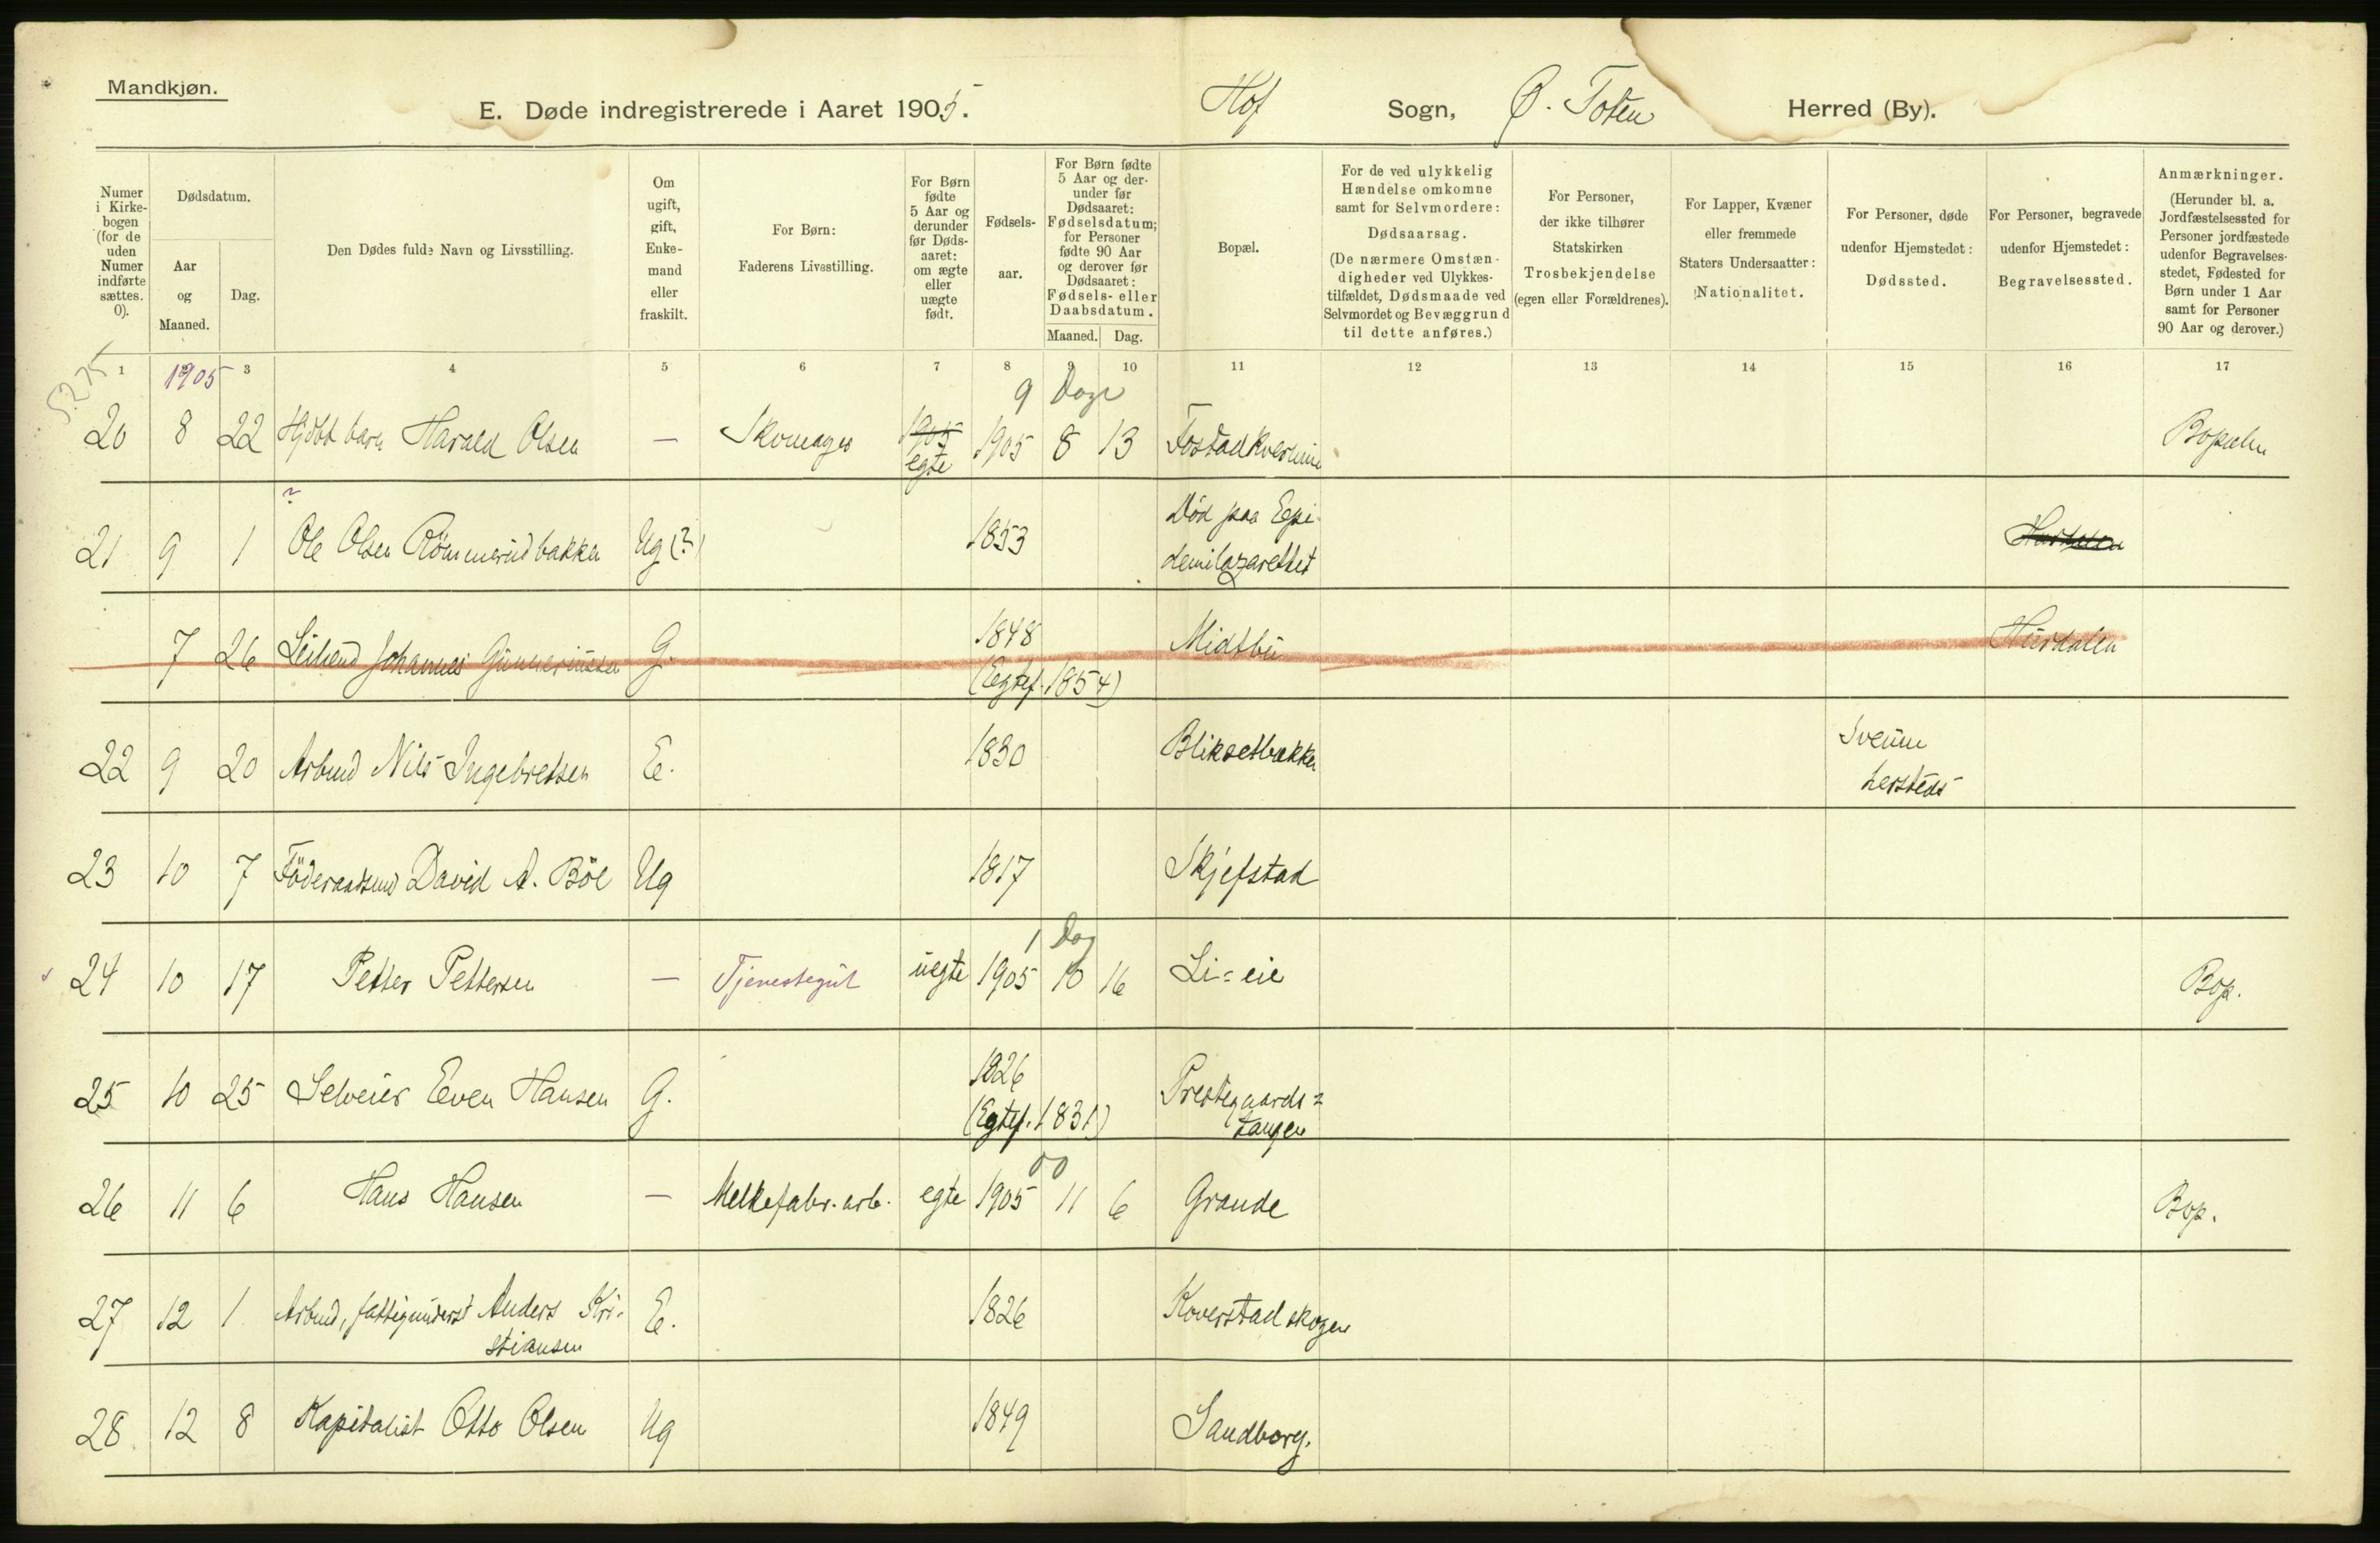 Mandkjøn.
E. Døde indregistrerede i Aaret 1905. Hof Sogn, Ø. Toten Herred (By).
Numer i Kirke-bogen (for de uden Numer indførte sættes. 0).
Dødsdatum.
Aar og Maaned.
Dag.
Den Dødes fulde Navn og Livsstilling.
Om ugift, gift, Enke-mand eller fraskilt.
For Børn: Faderens Livsstilling.
For Børn fødte 5 Aar og derunder før Døds-aaret: om ægte eller uægte født.
Fødsels-aar.
For Børn fødte 5 Aar og der-under før Dødsaaret: Fødselsdatum; for Personer fødte 90 Aar og derover før Dødsaaret: Fødsels- eller Daabsdatum.
Maaned. Dag.
Bopæl.
For de ved ulykkelig Hændelse omkomne samt for Selvmordere: Dødsaarsag. (De nærmere Omstæn-digheder ved Ulykkes-tilfældet, Dødsmaade ved Selvmordet og Bevæggrund til dette anføres.)
For Personer, der ikke tilhører Statskirken Trosbekjendelse (egen eller Forældrenes).
For Lapper, Kvæner eller fremmede Staters Undersaatter: Nationalitet.
For Personer, døde udenfor Hjemstedet: Dødssted.
For Personer, begravede udenfor Hjemstedet: Begravelsessted.
Anmærkninger. (Herunder bl. a. Jordfæstelsessted for Personer jordfæstede udenfor Begravelses-stedet, Fødested for Børn under 1 Aar samt for Personer 90 Aar og derover.)
1 2 3 4 5 6 7 8 9 10 11 12 13 14 15 16 17
1905
9 Dage
20 8 22 Hjdbt barn Harald Olsen — Skomager 1905 egte 1905 8 13 Fostadkvernen Bopælen
?
21 9 1 Ole Olsen Römmerudbakken Ug (?) 1853 Död paa Epi-
demilazarettet
7 26 Leilend Johannes Gunneriussen G. 1848 Midtbu Hurdalen
(Egtef. 1854)
22 9 20 Arbmd Nils Ingebretsen E. 1830 Bliksetbakken Sveum
lersteds
23 10 7 Föderaadsmd David A. Böe Ug 1817 Skjefstad
1 Dag
24 10 17 Petter Pettersen — Tjenestegut uegte 1905 10 16 Li=eie Bop.
25 10 25 Selveier Even Hansen G. 1826 Prestegaards=
(Egtef. 1831) tangen
00
26 11 6 Hans Hansen — Melkefabr. arb. egte 1905 11 6 Grande Bop.
27 12 1 Arbmd, fattigunderst Anders Kri- E. 1826 Koverstadskogen
stiansen
28 12 8 Kapitalist Otto Olsen Ug 1849 Sandborg.